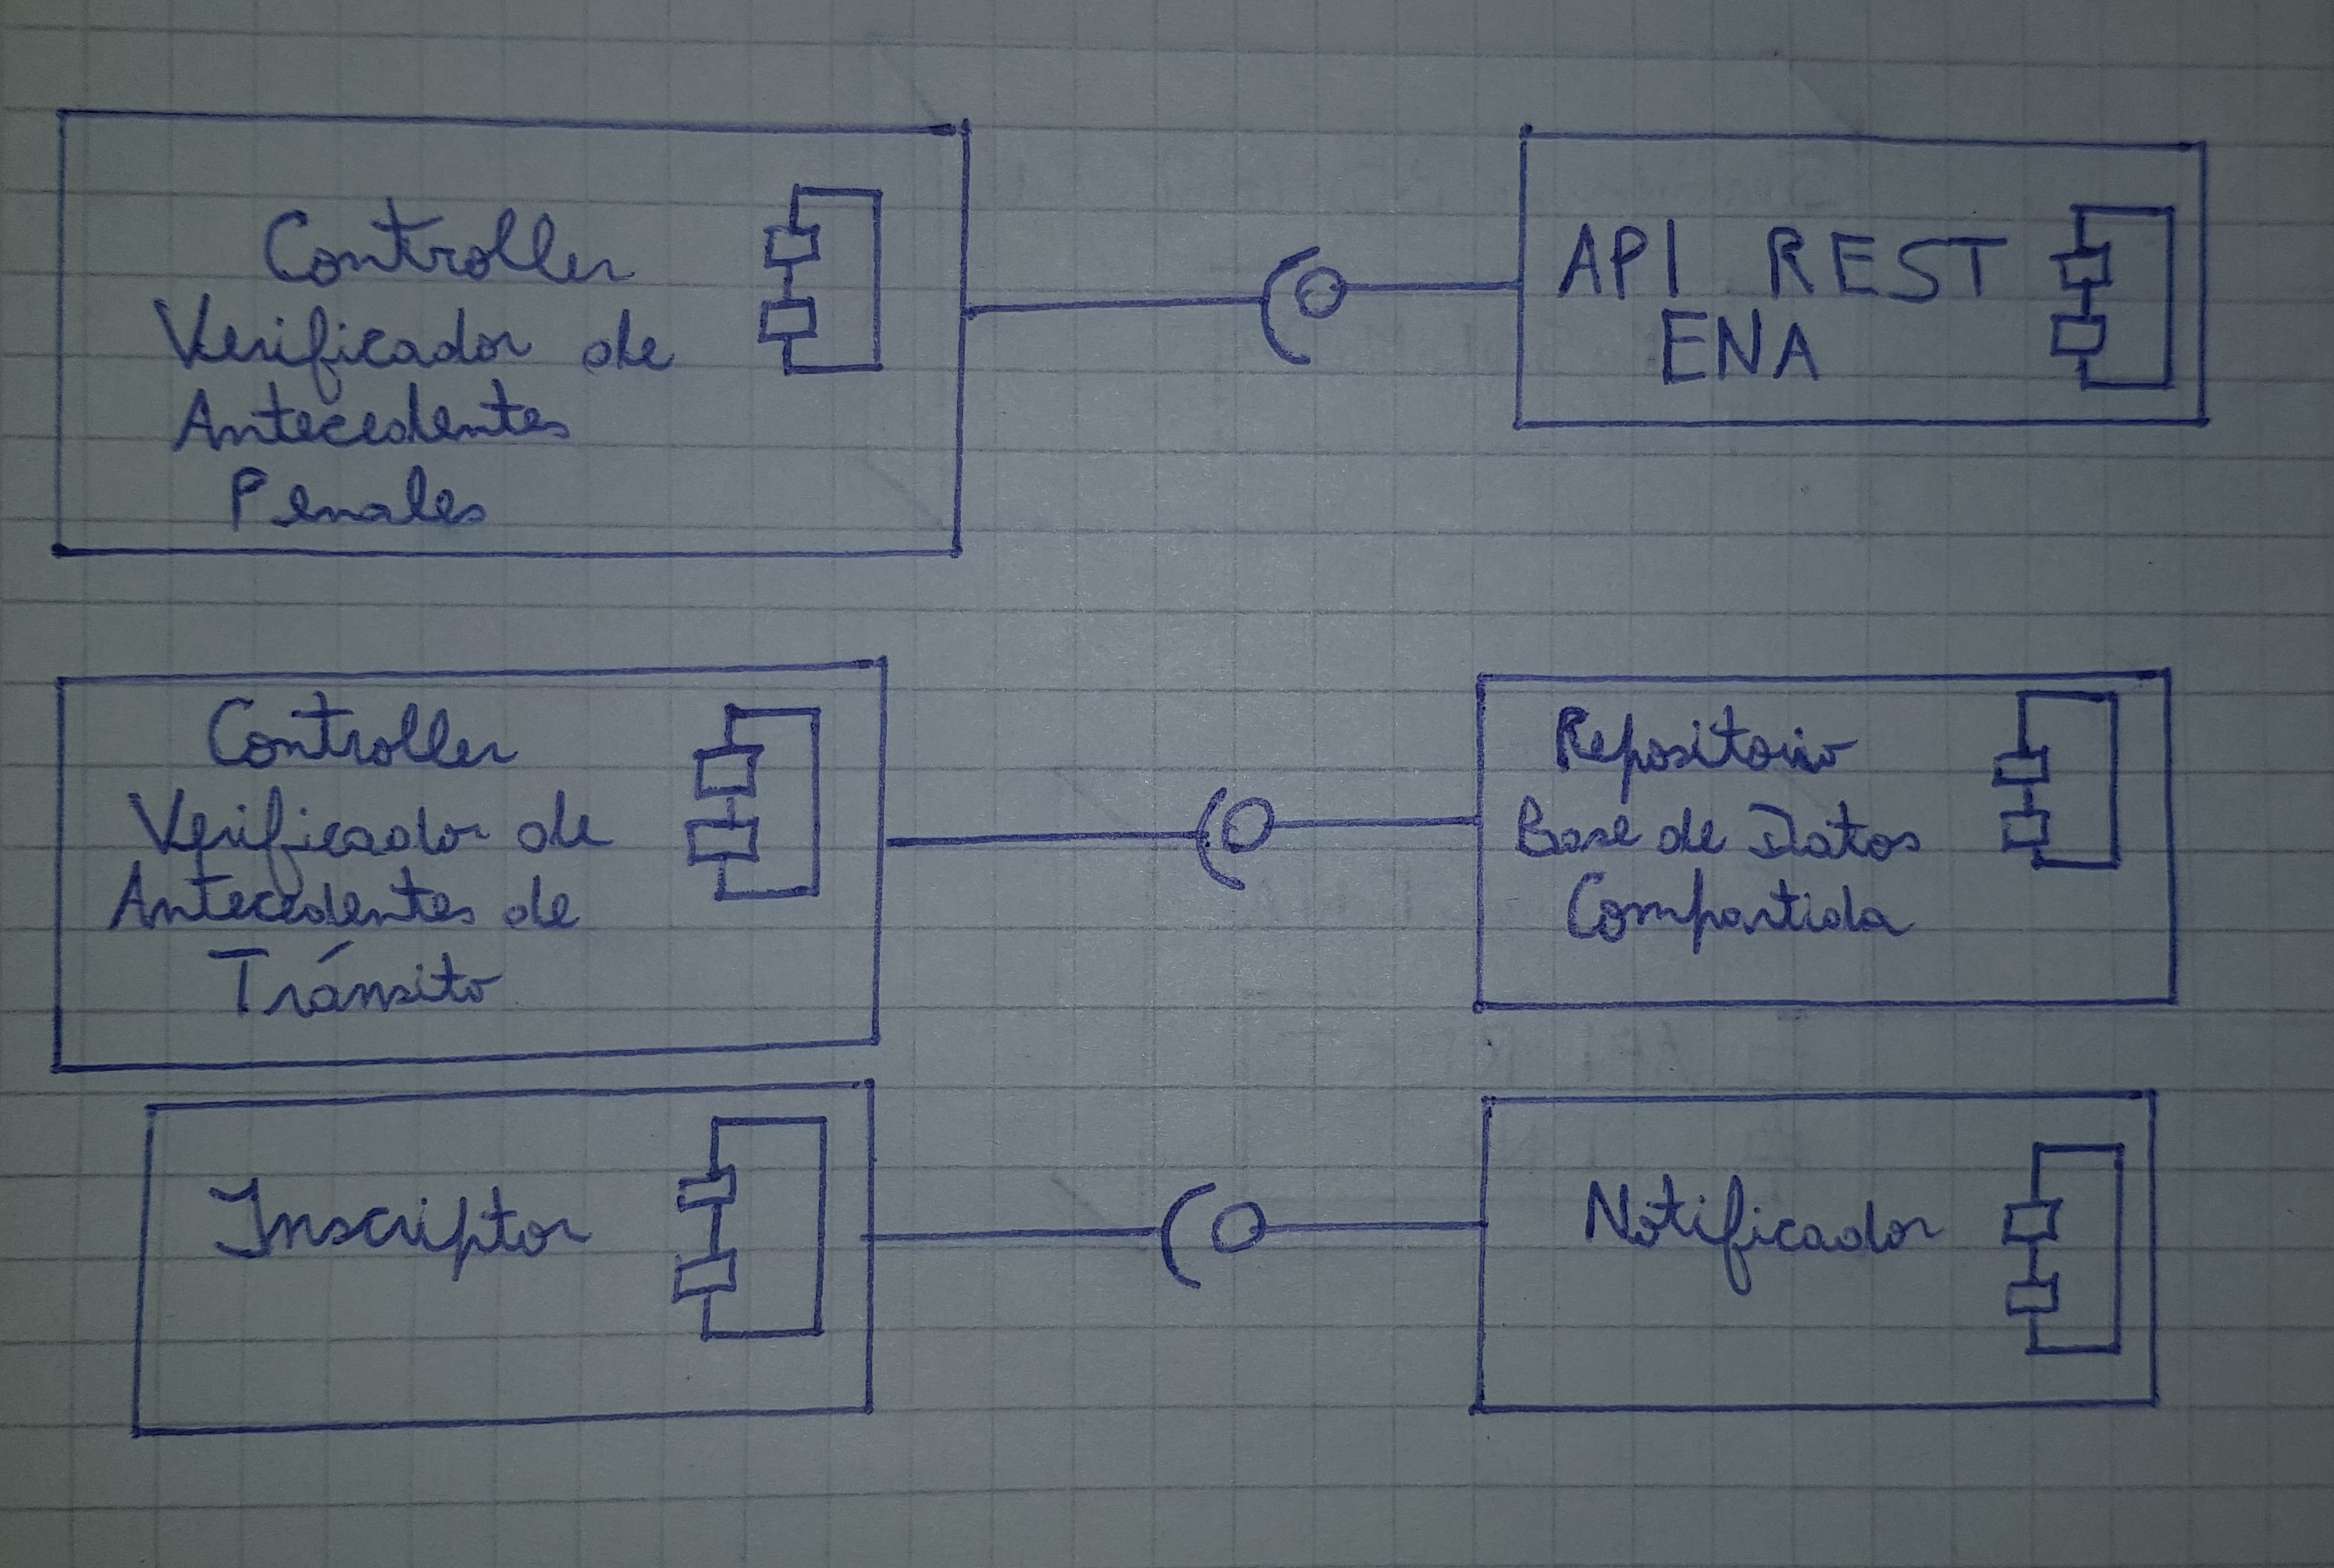 Controller
Verificador de
Antecedentes
Penales
API REST
ENA
Controller
Verificador de
Antecedentes de
Tránsito
Repositorio
Base de Datos
Compartida
Inscriptor
Notificador